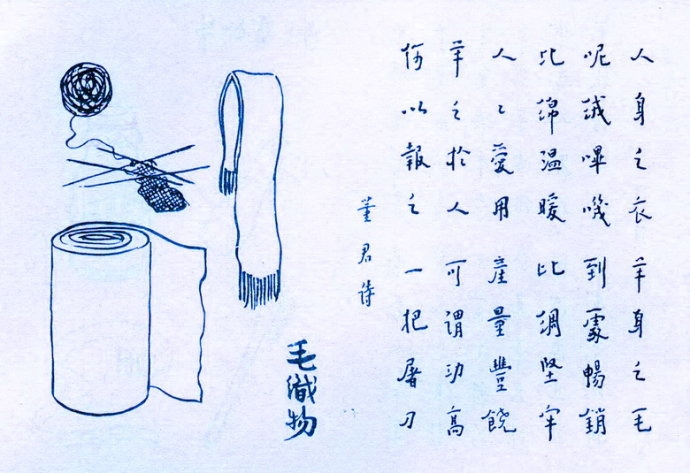 人身之衣羊身之毛
呢絨嗶嘰到處暢銷
比綿溫暖比綢堅牢
人〻愛用產量豐饒
羊之於人可謂功高
何以報之一把屠刀
董君詩
毛織物